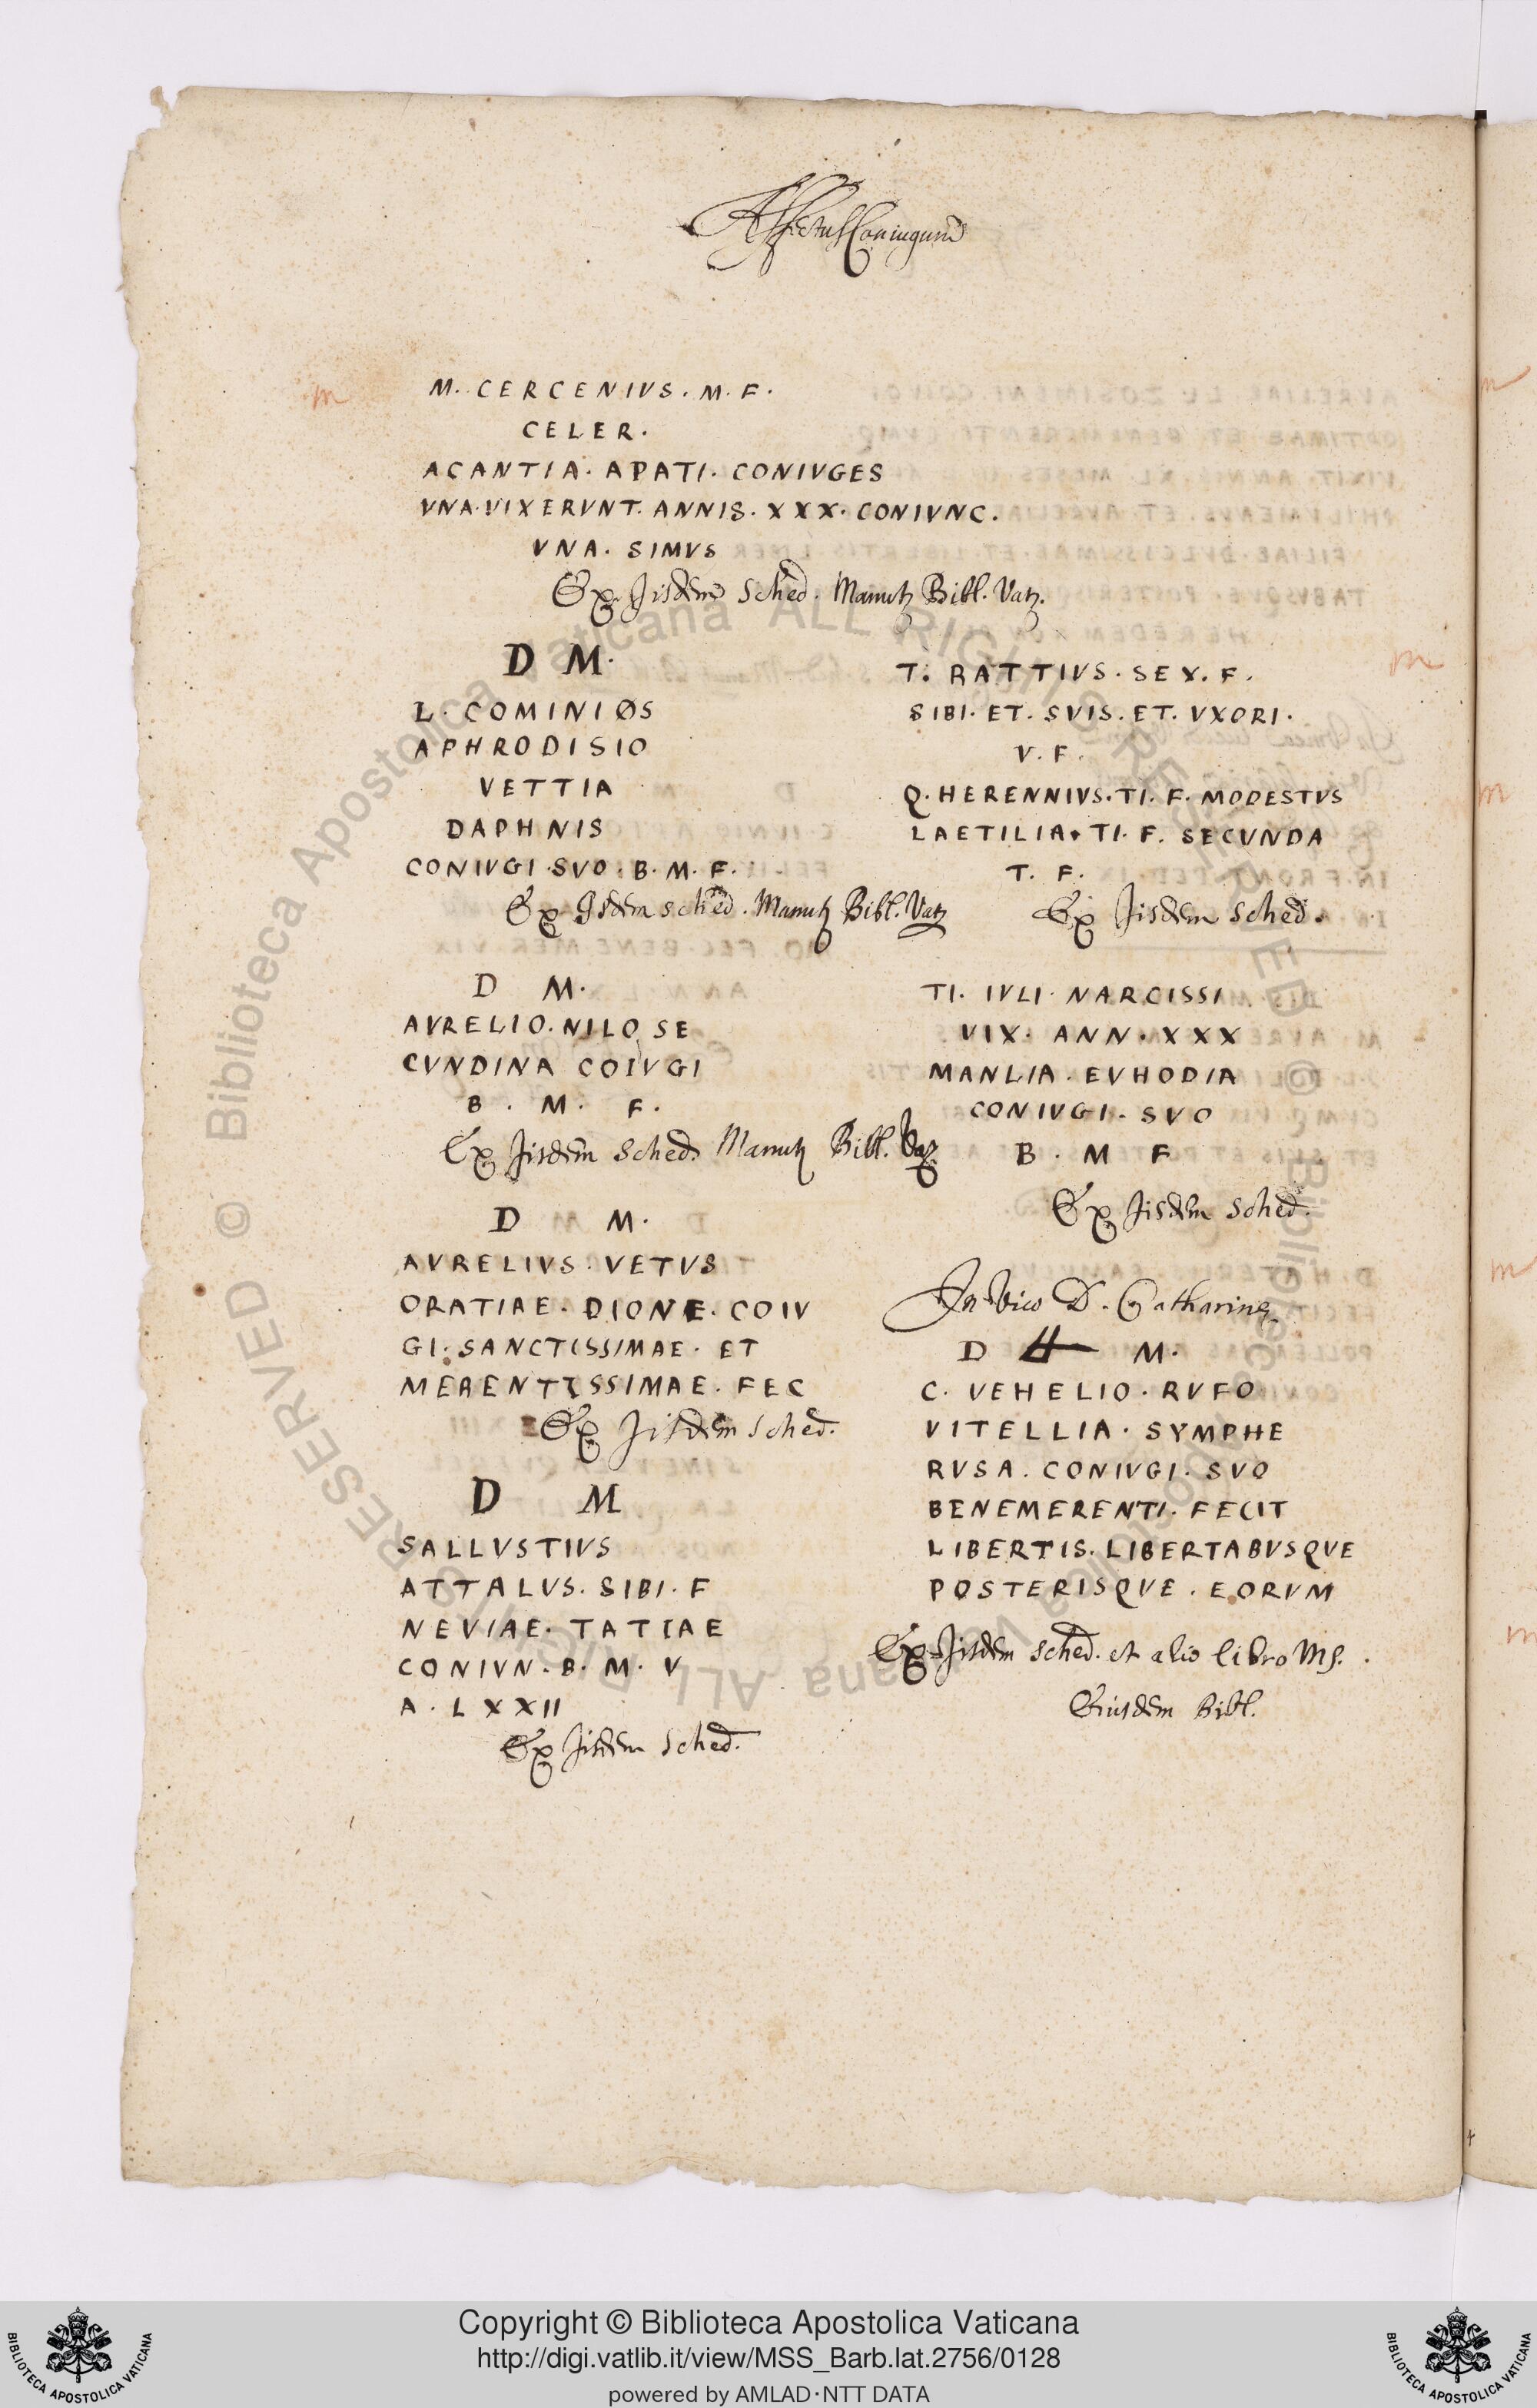 Affectus Coniugum
m
M. CERCENIVS. M. F.
CELER.
ACANTIA. APATI. CONIVGES
VNA. VIXERVNT. ANNIS. XXX. CONIVNC.
VNA. SIMVS
Ex Jisdem Sched. Manutij Bibl. Vatj.
D M.
L. COMINIOS
APHRODISIO
VETTIA
DAPHNIS
CONIVGI. SVO. B. M. F.
Ex Jisdem sched. Manutij Bibl. Vatj
D M.
AVRELIO. NILO SE
CVNDINA COIVGI
B. M. F.
Ex Jisdem Sched. Manutij Bibl. Vatj.
D M.
AVRELIVS. VETVS
ORATIAE. DIONE. COIV
GI. SANCTISSIMAE. ET
MERENTISSIMAE. FEC
Ex Jisdem sched.
D M
SALLVSTIVS
ATTALVS. SIBI. F
NEVIAE. TATIAE
CONIVN. B. M. V
A. LXXII
Ex Jisdem sched.
m
T. RATTIVS. SEX. F.
SIBI. ET. SVIS. ET. VXORI.
V. F.
Q. HERENNIVS. TI. F. MODESTVS
LAETILIA. TI. F. SECVNDA
T. F.
Ex Jisdem sched.
TI. IVLI. NARCISSI
VIX. ANN. XXX
MANLIA. EVHODIA
CONIVGI. SVO
B. M F
Ex Jisdem sched.
In Vico D. Catharinę
D M.
C. VEHELIO. RVFO
VITELLIA. SYMPHE
RVSA. CONIVGI. SVO
BENEMERENTI. FECIT
LIBERTIS. LIBERTABVSQVE
POSTERISQVE. EORVM
Ex Jisdem sched. et alio libro Ms.
Eiusdem Bibl.
m
m
m
m
© Biblioteca Apostolica Vaticana ALL RIGHTS RESERVED © Biblioteca Apostolica Vaticana ALL RIGHTS RESERVED
Copyright © Biblioteca Apostolica Vaticana
http://digi.vatlib.it/view/MSS_Barb.lat.2756/0128
powered by AMLAD·NTT DATA
BIBLIOTECA APOSTOLICA VATICANA
BIBLIOTECA APOSTOLICA VATICANA